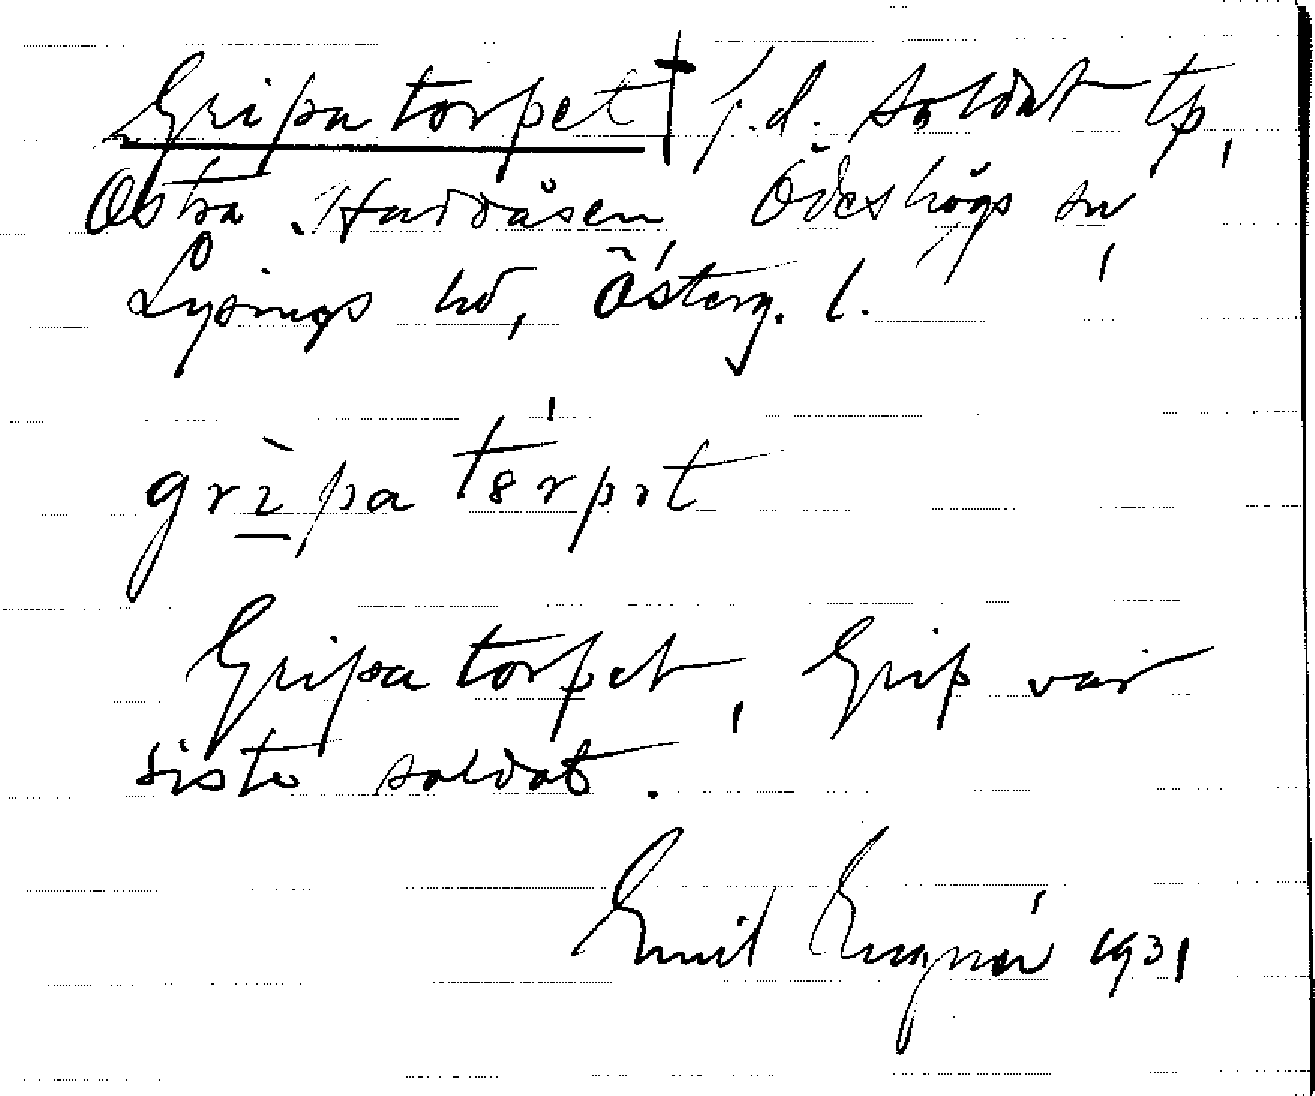 Gripatorpet † f.d. soldattp,
Östra Haddåsen Ödeshögs sn,
Lysings hd, Österg. l.
grìpa tórpət
Gripatorpet, Grip var
siste soldat.
Emil Engnér 1931